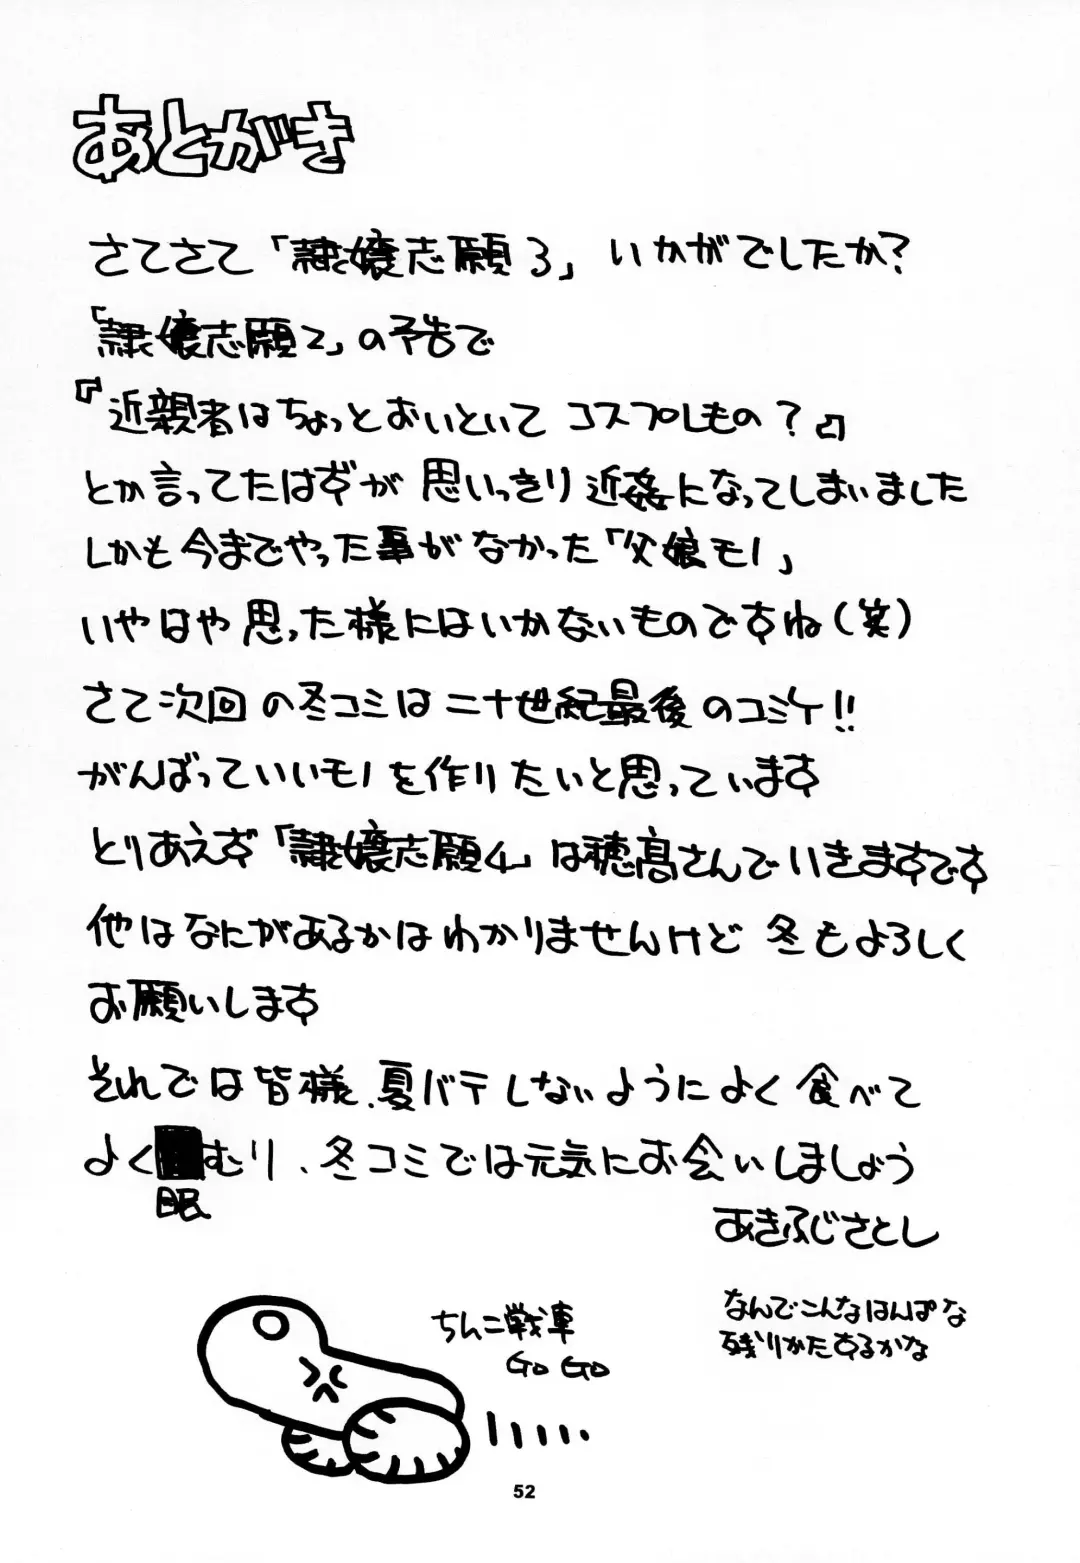 あとがき
さてさて「隷嬢志願3」いかがでしたか?
「隷嬢志願2」の予告で
『近親者はちょっとおいといて コスプレもの?』
とか言ってたはずが 思いっきり近姦になってしまいました
しかも今までやった事がなかった「父娘モノ」
いやはや思った様にはいかないものですね(笑)
さて次回の冬コミは二十世紀最後のコミケ!!
がんばっていいモノを作りたいと思っています
とりあえず「隷嬢志願4」は穂高さんでいきますです
他はなにがあるかはわかりませんけど 冬もよろしく
お願いします
それでは皆様、夏バテしないようによく食べて
よくむり、冬コミでは元気にお会いしましょう
眠
あきふじさとし
ちんこ戦車
GO GO
なんでこんなはんぱな
残りかたするかな
52